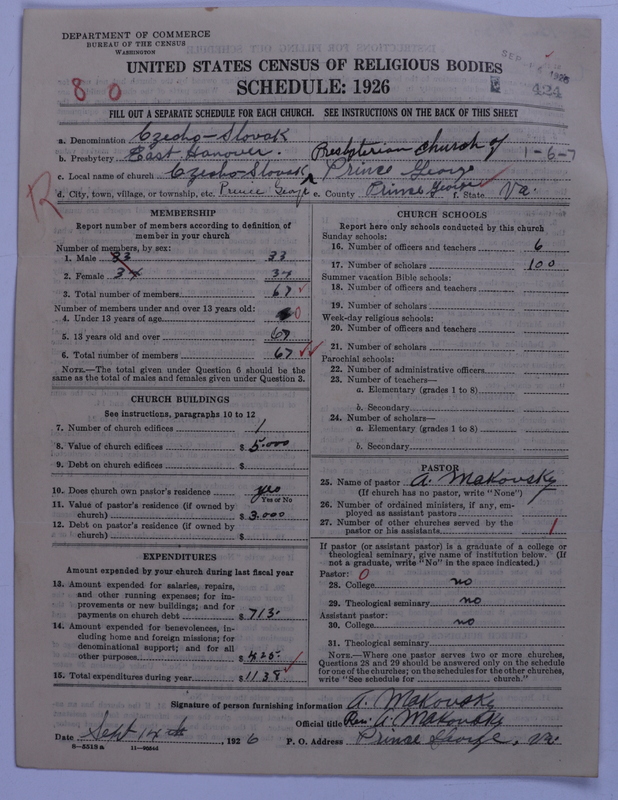 DEPARTMENT OF COMMERCE
BUREAU OF THE CENSUS
WASHINGTON
UNITED STATES CENSUS OF RELIGIOUS BODIES
SCHEDULE: 1926
8 0
SEP 1926
424
FILL OUT A SEPARATE SCHEDULE FOR EACH CHURCH. SEE INSTRUCTIONS ON THE BACK OF THIS SHEET
a. Denomination Czecho-Slovak
b. Presbytery East Hanover. Presbyterian Church of 1-6-7
c. Local name of church Czecho-Slovak ^ Prince George
R
d. City, town, village, or township, etc. Prince George e. County Prince George f. State Va.
MEMBERSHIP
Report number of members according to definition of member in your church
Number of members, by sex:
1. Male 33 33
2. Female 34 34
3. Total number of members 67
Number of members under and over 13 years old:
4. Under 13 years of age 0
5. 13 years old and over 67
6. Total number of members 67
NOTE.—The total given under Question 6 should be the same as the total of males and females given under Question 3.
CHURCH BUILDINGS
See instructions, paragraphs 10 to 12
7. Number of church edifices 1
8. Value of church edifices $ 5.000
9. Debt on church edifices $
10. Does church own pastor's residence yes
Yes or No
11. Value of pastor's residence (if owned by church) $ 3.000
12. Debt on pastor's residence (if owned by church) $
EXPENDITURES
Amount expended by your church during last fiscal year
13. Amount expended for salaries, repairs, and other running expenses; for improvements or new buildings; and for payments on church debt $ 713.
14. Amount expended for benevolences, including home and foreign missions; for denominational support; and for all other purposes $ 425.
15. Total expenditures during year $ 1138
CHURCH SCHOOLS
Report here only schools conducted by this church
Sunday schools:
16. Number of officers and teachers 6
17. Number of scholars 100
Summer vacation Bible schools:
18. Number of officers and teachers
19. Number of scholars
Week-day religious schools:
20. Number of officers and teachers
21. Number of scholars
Parochial schools:
22. Number of administrative officers
23. Number of teachers—
a. Elementary (grades 1 to 8)
b. Secondary
24. Number of scholars—
a. Elementary (grades 1 to 8)
b. Secondary
PASTOR
25. Name of pastor A. Makovsky
(If church has no pastor, write "None")
26. Number of ordained ministers, if any, employed as assistant pastors
27. Number of other churches served by the pastor or his assistants 1
If pastor (or assistant pastor) is a graduate of a college or theological seminary, give name of institution below. (If not a graduate, write "No" in the space indicated.)
Pastor: 0
28. College no
29. Theological seminary no
Assistant pastor:
30. College no
31. Theological seminary
NOTE.—Where one pastor serves two or more churches, Questions 28 and 29 should be answered only on the schedule for one of the churches; on the schedules for the other churches, write "See schedule for church."
Signature of person furnishing information A. Makovsky
Official title Rev. A. Makovsky
Date Sept 14th, 1926 P. O. Address Prince George, Va
8-5513a 11-9064d